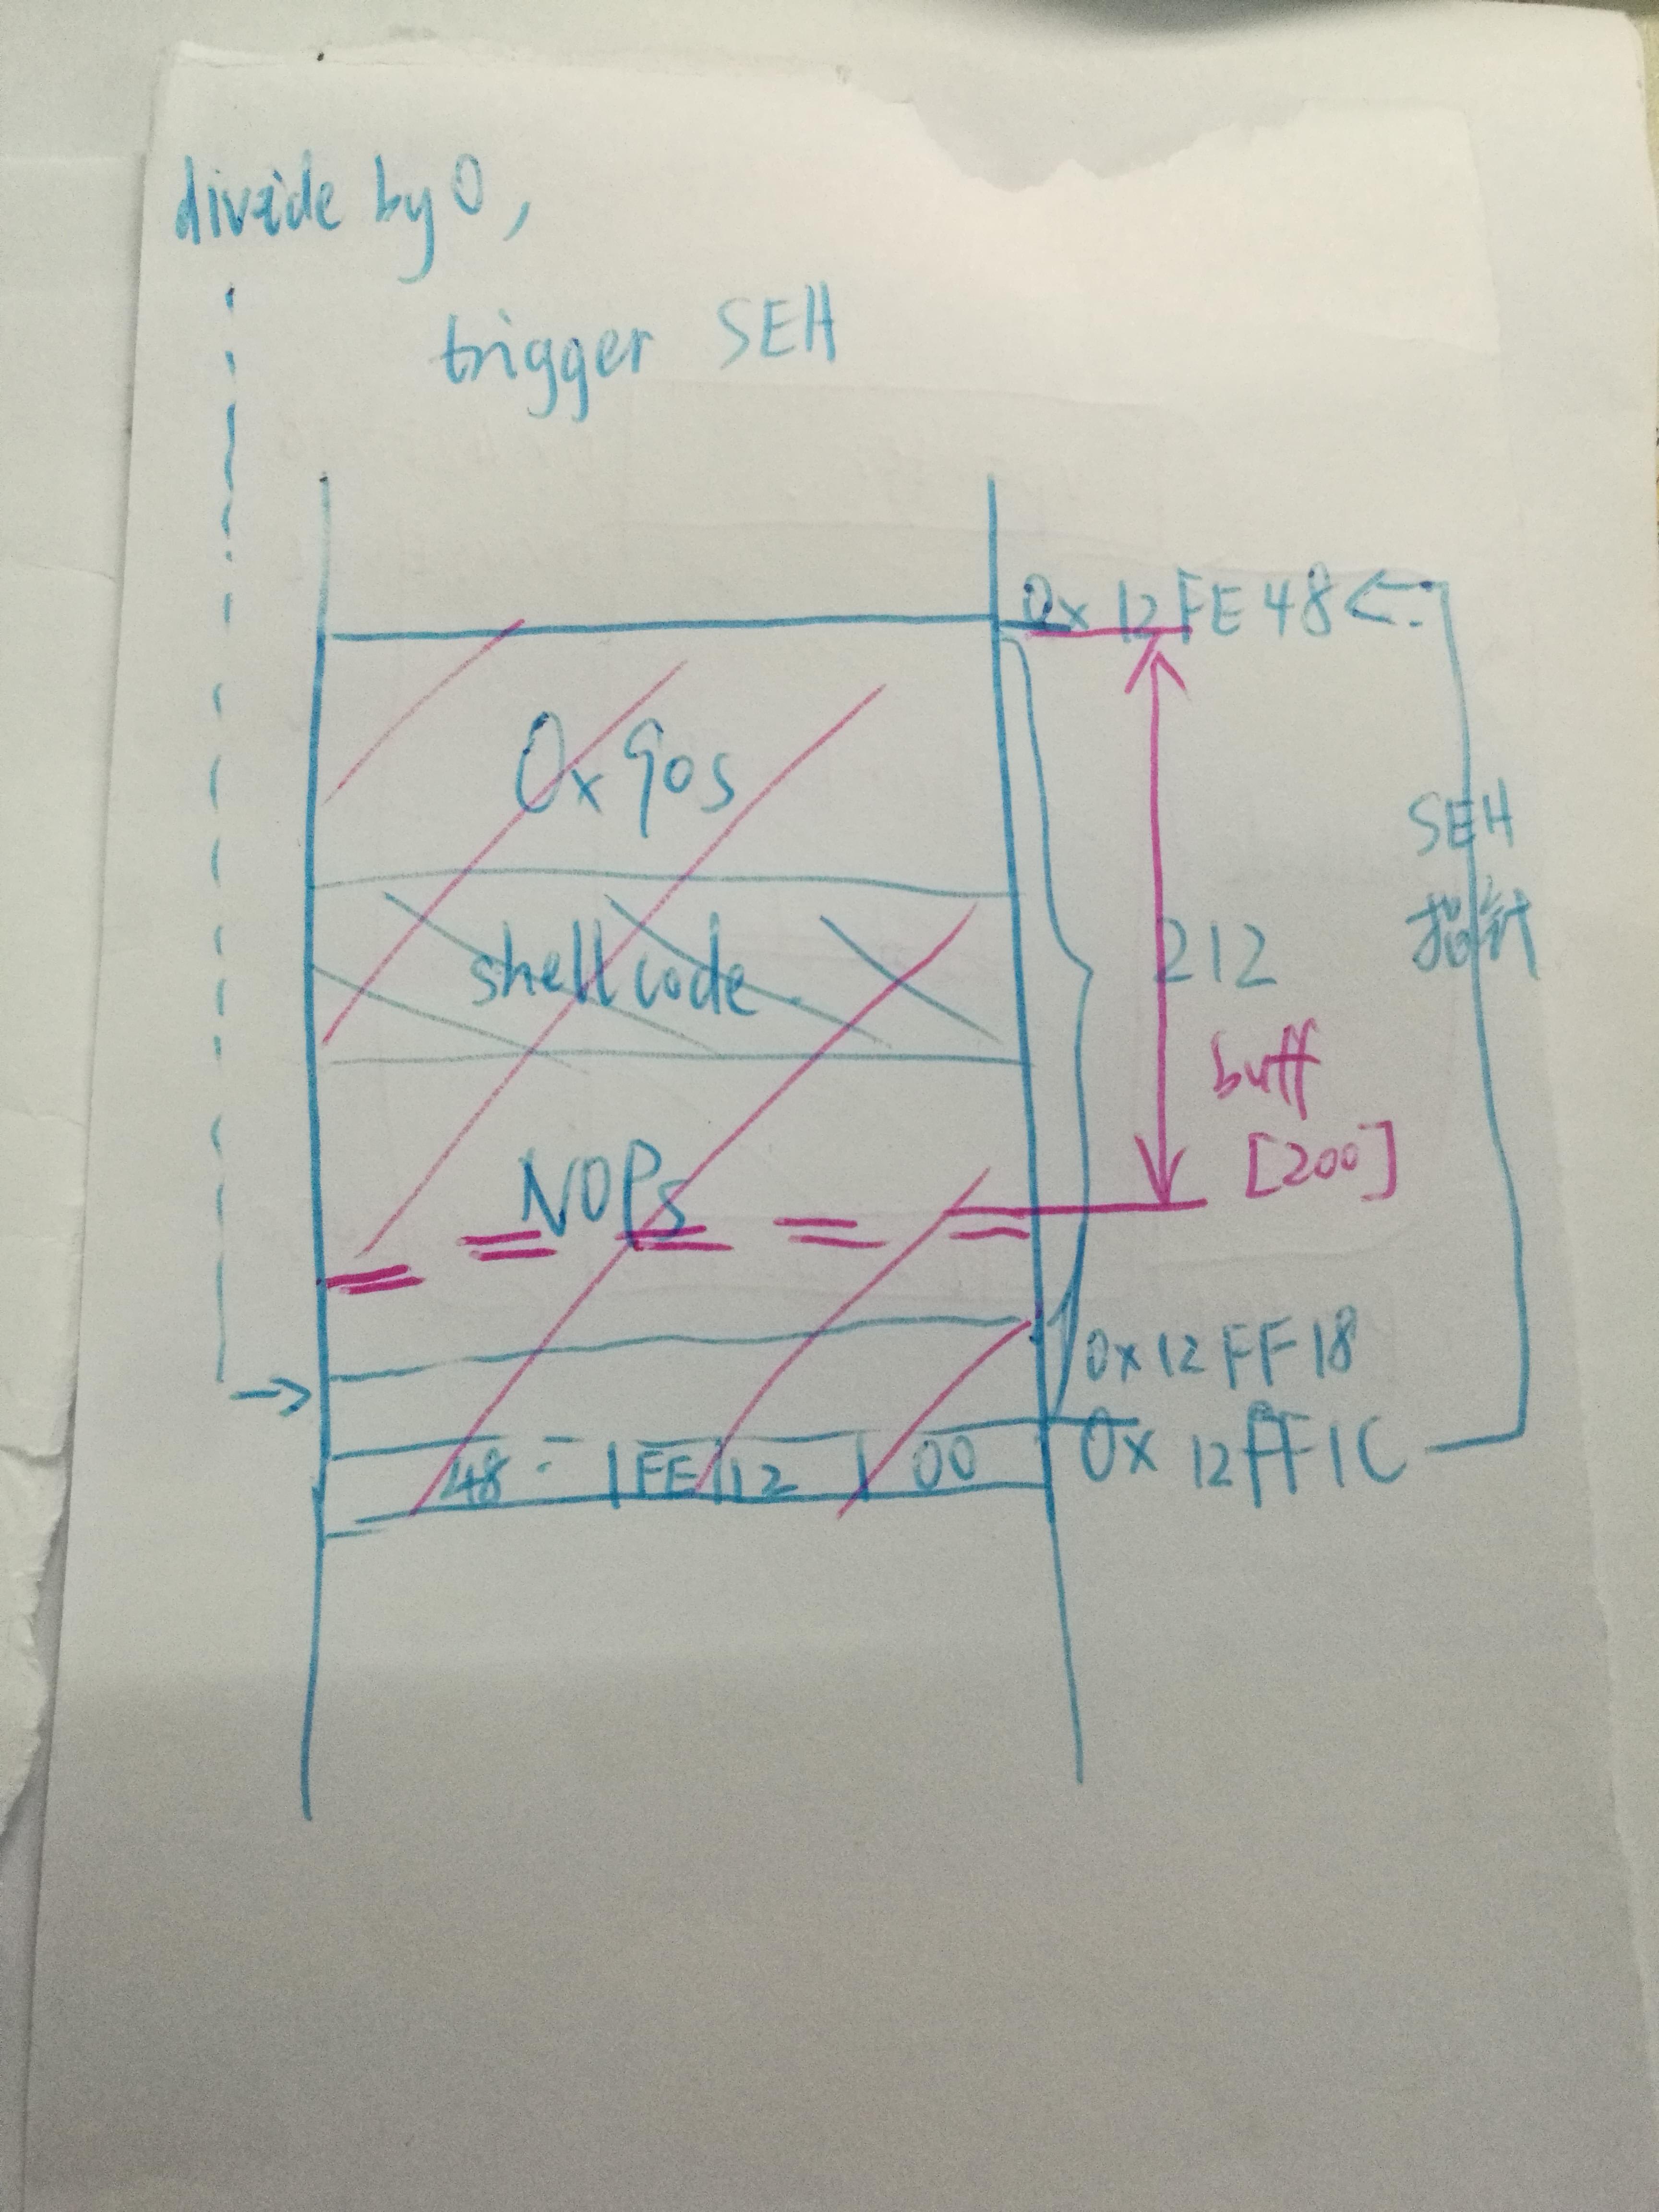 divide by 0,
trigger SEH
0x12FE48
0x90s
SEH
指针
shellcode
212
buff
[200]
NOPs
0x12FF18
48 FE 12 00
0x12FF1C